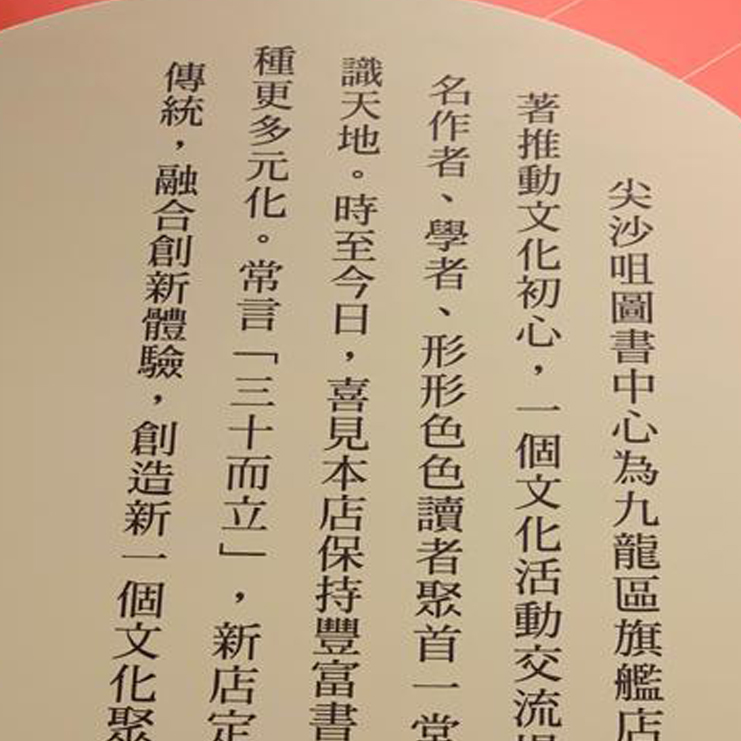 尖沙咀圖書中心為九龍區旗艦店
著推動文化初心，一個文化活動交流場
名作者、學者、形形色色讀者聚首一堂
識天地。時至今日，喜見本店保持豐富書
種更多元化。常言「三十而立」，新店定
傳統，融合創新體驗，創造新一個文化聚